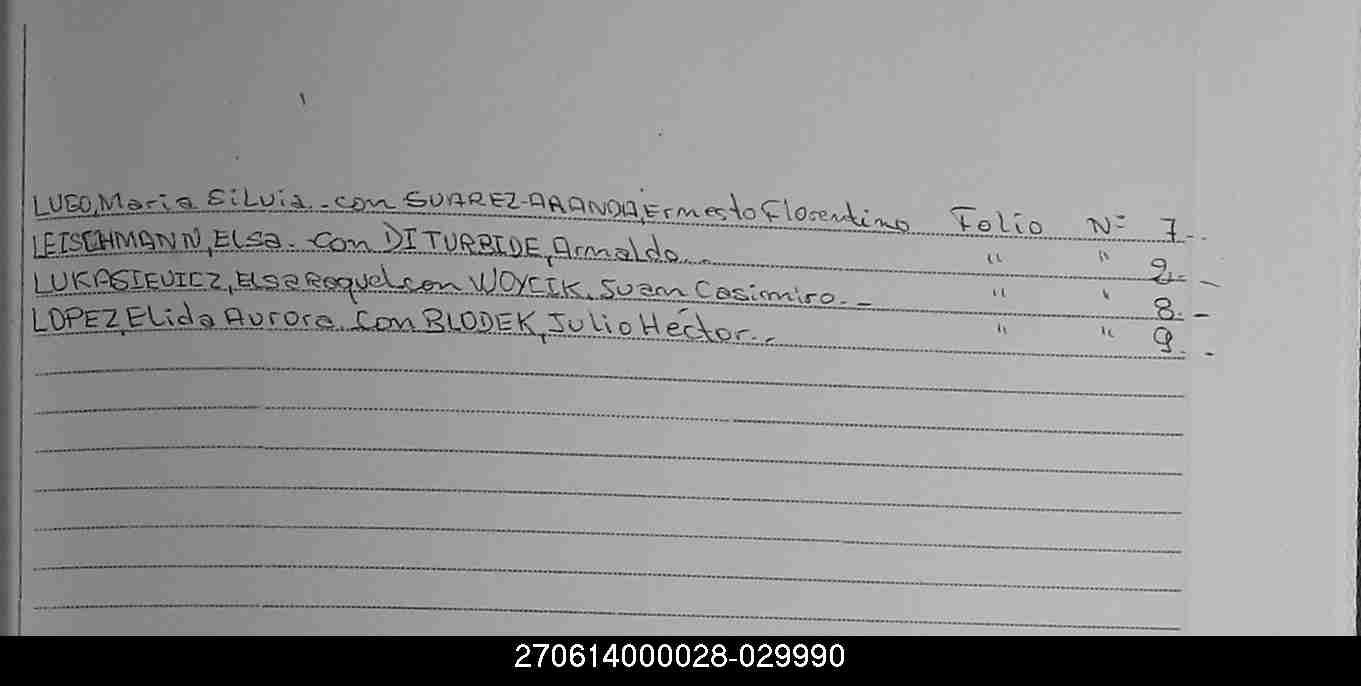 LUGO, Maria Silvia. con SUAREZ-ARANDA, Ernesto Florentino Folio Nº 7.-
LEISCHMANN, Elsa. con DITURBIDE, Arnaldo.- " " 2.-
LUKASIEVICZ, Elsa Raquel con WOYCIK, Juan Casimiro.- " " 8.-
LOPEZ, Elida Aurora. con BLODEK, Julio Héctor.- " " 9.-
270614000028-029990